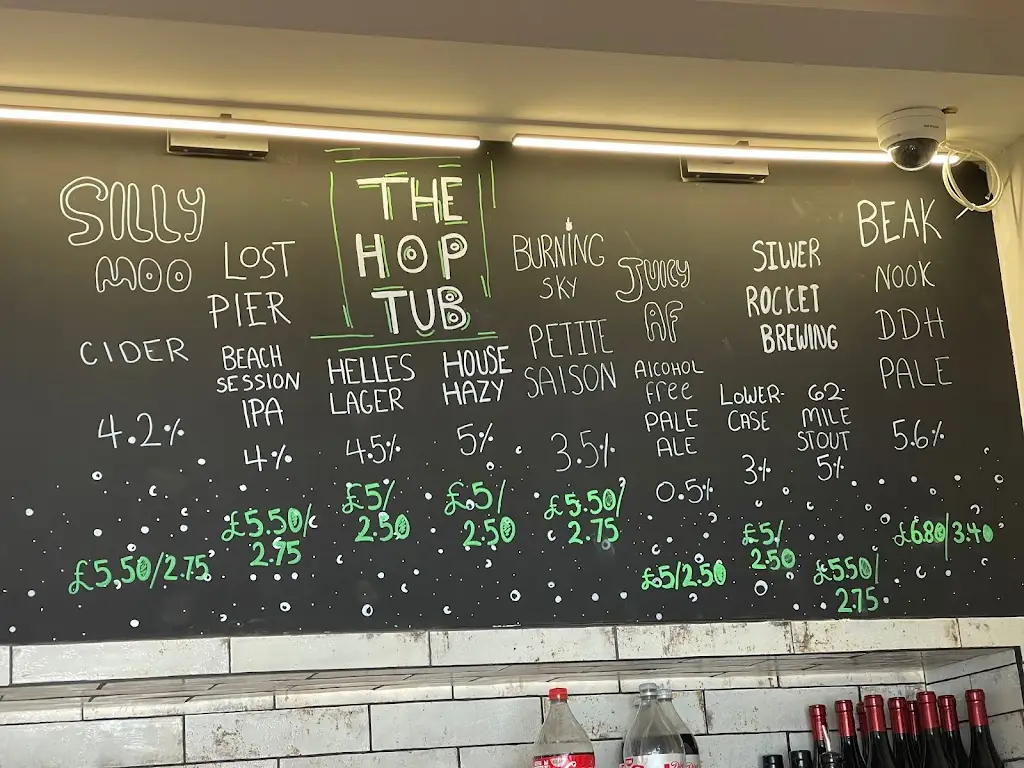 SILLY
MOO
CIDER
4.2%
£5.50/2.75
LOST
PIER
BEACH
SESSION
IPA
4%
£5.50/
2.75
THE
HOP
TUB
HELLES
LAGER
4.5%
£5/
2.50
HOUSE
HAZY
5%
£5/
2.50
BURNING
SKY
PETITE
SAISON
3.5%
£5.50/
2.75
JUICY
AF
ALCOHOL
free
PALE
ALE
0.5%
£5/2.50
SILVER
ROCKET
BREWING
LOWER-
CASE
3%
£5/
2.50
62-
MILE
STOUT
5%
£5.50/
2.75
BEAK
NOOK
DDH
PALE
5.6%
£6.80/3.40